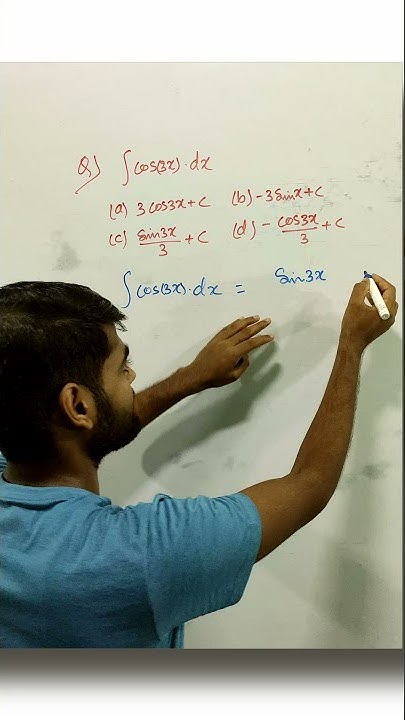 Q) ∫ cos(3x) · dx
(a) 3 cos3x + C (b) - 3 Sinx + C
(c) Sin3x/3 + C (d) - cos3x/3 + C
∫ cos(3x) · dx = Sin3x